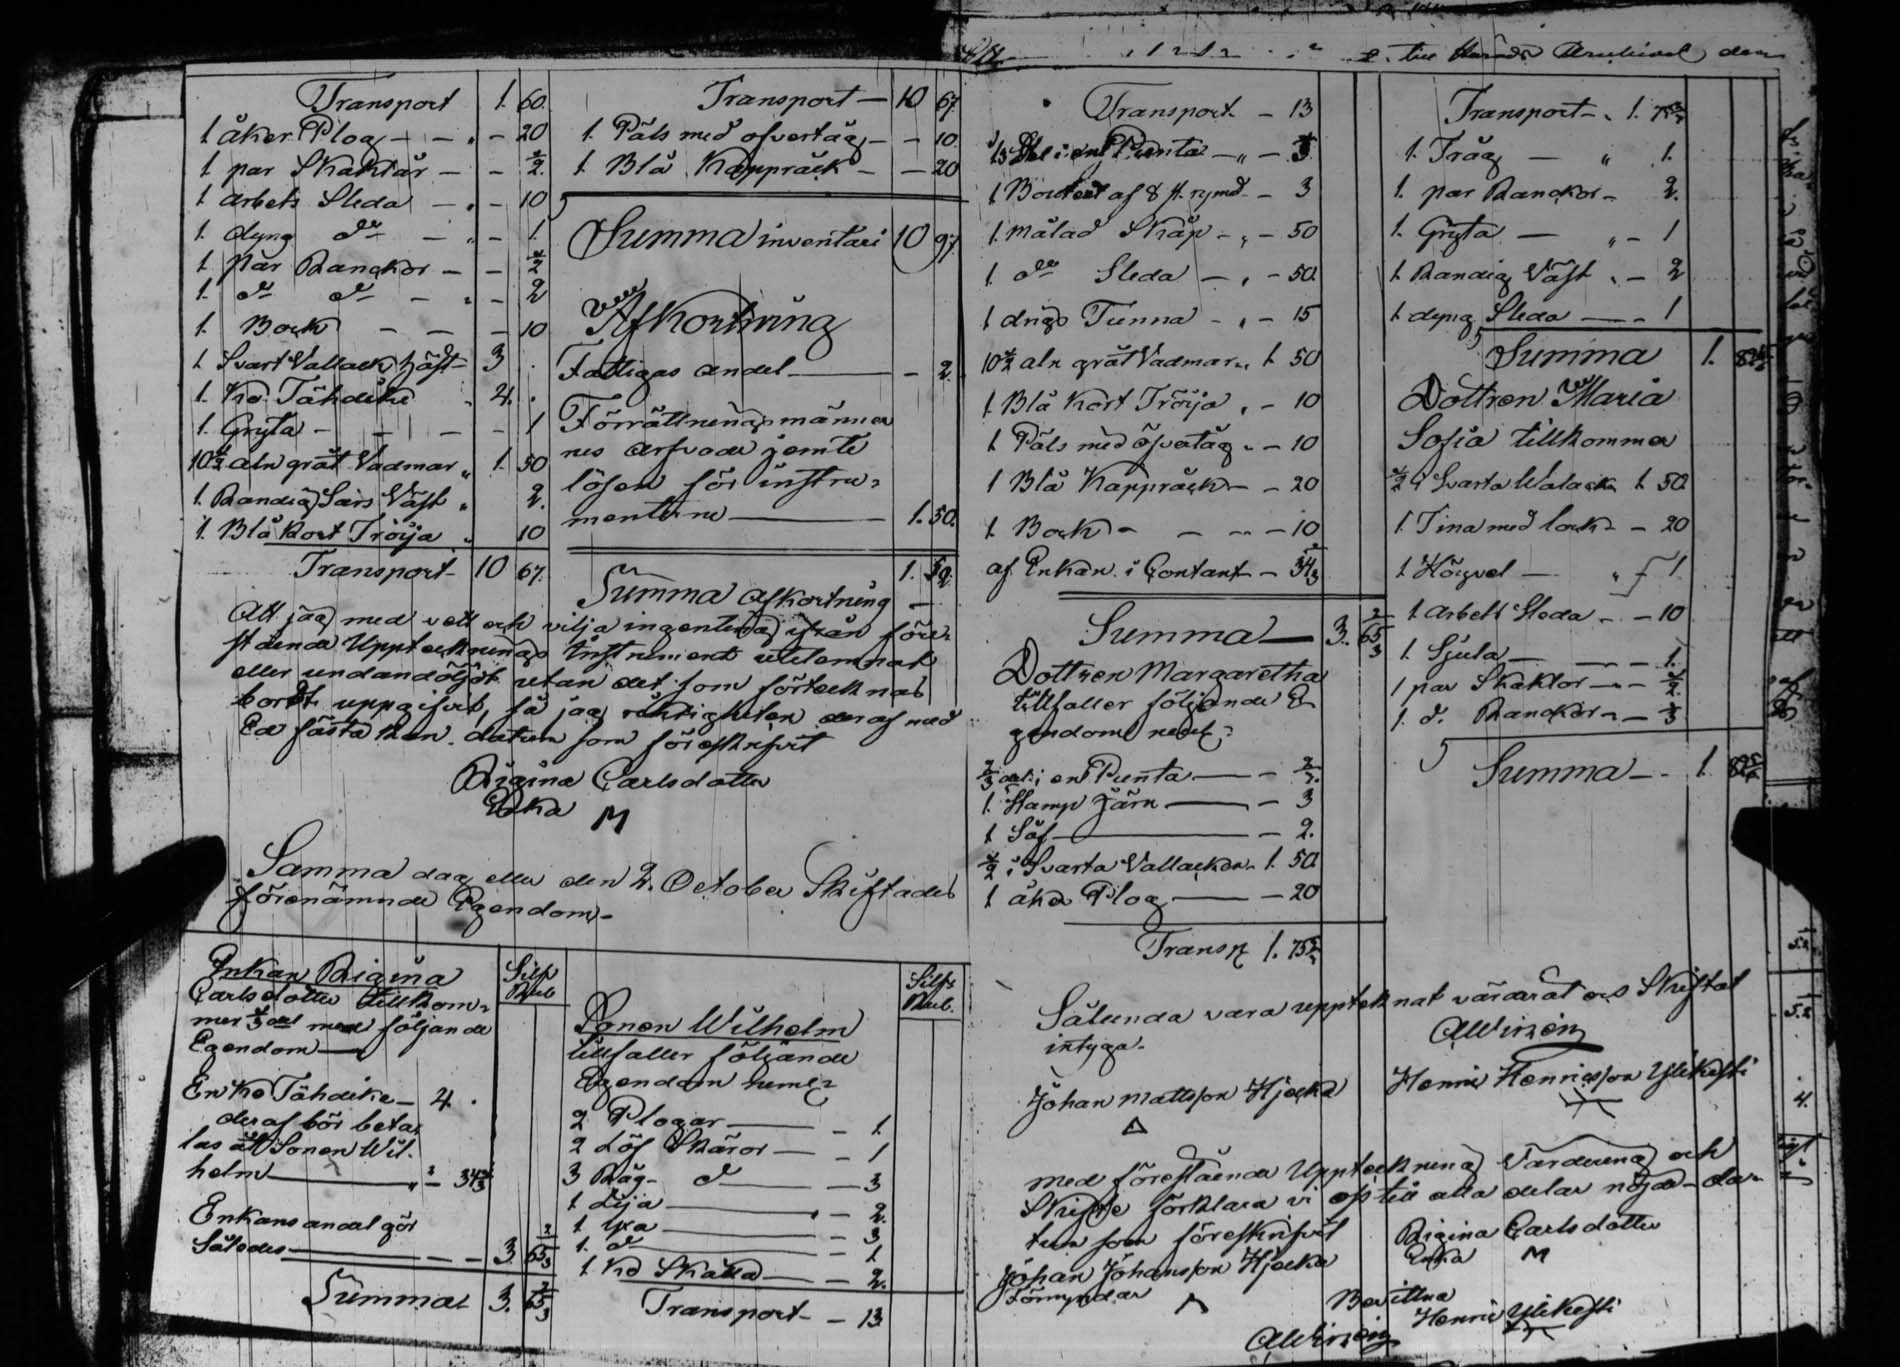 Transport 1. 60.
1. åker Plog — — 20
1 par Skaklar — — ½.
1 arbets Släda — — 10
1. dyng do — — 1.
1 par Ranckor — — ½
1. do do — — 2
1 Bock — — — 10
1 Svart Vallack Häst — 3
1. Ko Tähdike 4.
1. Gryta — — — 1
10½ aln grät Vadmar 1. 50
1. Randig Sars Väst 2.
1. Blå Kort Tröija 10
Transport — 10 67.
Transport — 10 67.
1. Päls med ofvertåg — — 10.
1. Blå Kappråck — — 20
Summa inventari 10 97.
Afkortning
Fattigas andel — — 2.
Förrättningsmänner
nes arfvode jemte
lösen för instru-
menterne — 1. 50.
Summa afkortning — 1. 52.
Att jag med vett och vilja ingenting ifrån före-
stående Upptecknings Instrument utelemnat
eller undandöljt utan det som förtecknas
bordt uppgifvit, så jag rigtigheten deraf med
Ed fästa kan. datum som föreskrifvit
Rigina Carlsdotter
Enka M
Samma dag eller den 2. October Skiftades
förenämnde Egendom.
Enkan Rigina
Carlsdotter tillkom-
mer ⅓ del med följande
Egendom —
Silf Rub
En Ko Tähdike — 4.
deraf bör beta-
las åt Sonen Wil-
helm — 34⅓
Enkans andel gör
således — — 3. 65⅔
Summa 3. 65⅔
Sonen Wilhelm
tillfaller följande
Egendom neml:
Silf Rub.
2 Plogar — — 1.
2 Löf Skäror — — 1
3 Råg- do — — 3
1 Lija — — 2.
1 Yxa — — 3
1. do — — 1
1 Ko Skälla — — 2.
Transport — — 13
till Härads Archivet den
Transport — — 13
⅓ Del i en Punta — —
1 af 8 rymd — 3
1. målad Skåp — — 50
1. do Släda — — 50.
1 drigs Tunna — — 15
10½ aln grät Vadmar 1. 50
1. Blå Kort Tröija — 10
1 Päls med öfvertåg — 10
1 Blå Kappråck — — 20
1. Bock — — — 10
af Enkan i Contant — 34⅓
Summa — 3. 65⅔
Dottren Margaretha
tillfaller följande E-
gendom neml:
⅔ del i en Punta — —
1. Stamp Järn — — 3
1 Såf — — 2.
½ i Svarta Vallacken 1. 50
1 åker Plog — — 20
Transp. 1. 75⅔
Transport — 1. 75⅔
1. Tråg — 1.
1. par Ranckor — 2.
1. Gryta — — 1
1. Randig Väst — 2
1. dyng Släda — — 1
Summa 1.
Dottren Maria
Sofia tillkommer
½ i Svarta Walack 1. 50.
1. Tina med lock — — 20
1 — 1.
1 Arbets Släda — — 10
1. — — 1.
1 par Skaklor — — ½.
1. do. Ranckor — — ⅓
Summa — 1.
Sålunda vara upptecknat värderat och Skiftat
intyga.
Johan Mattsson Hjocka
Henric Henricsson Ylikesti
Med förestående Uppteckning Värdering och
Skifte förklara vi oss till alla delar nöjde — da-
tum som föreskrifvit
Rigina Carlsdotter
Enka M
Johan Johansson Hjocka
Förmyndar
Bevittna
Henric Ylikesti